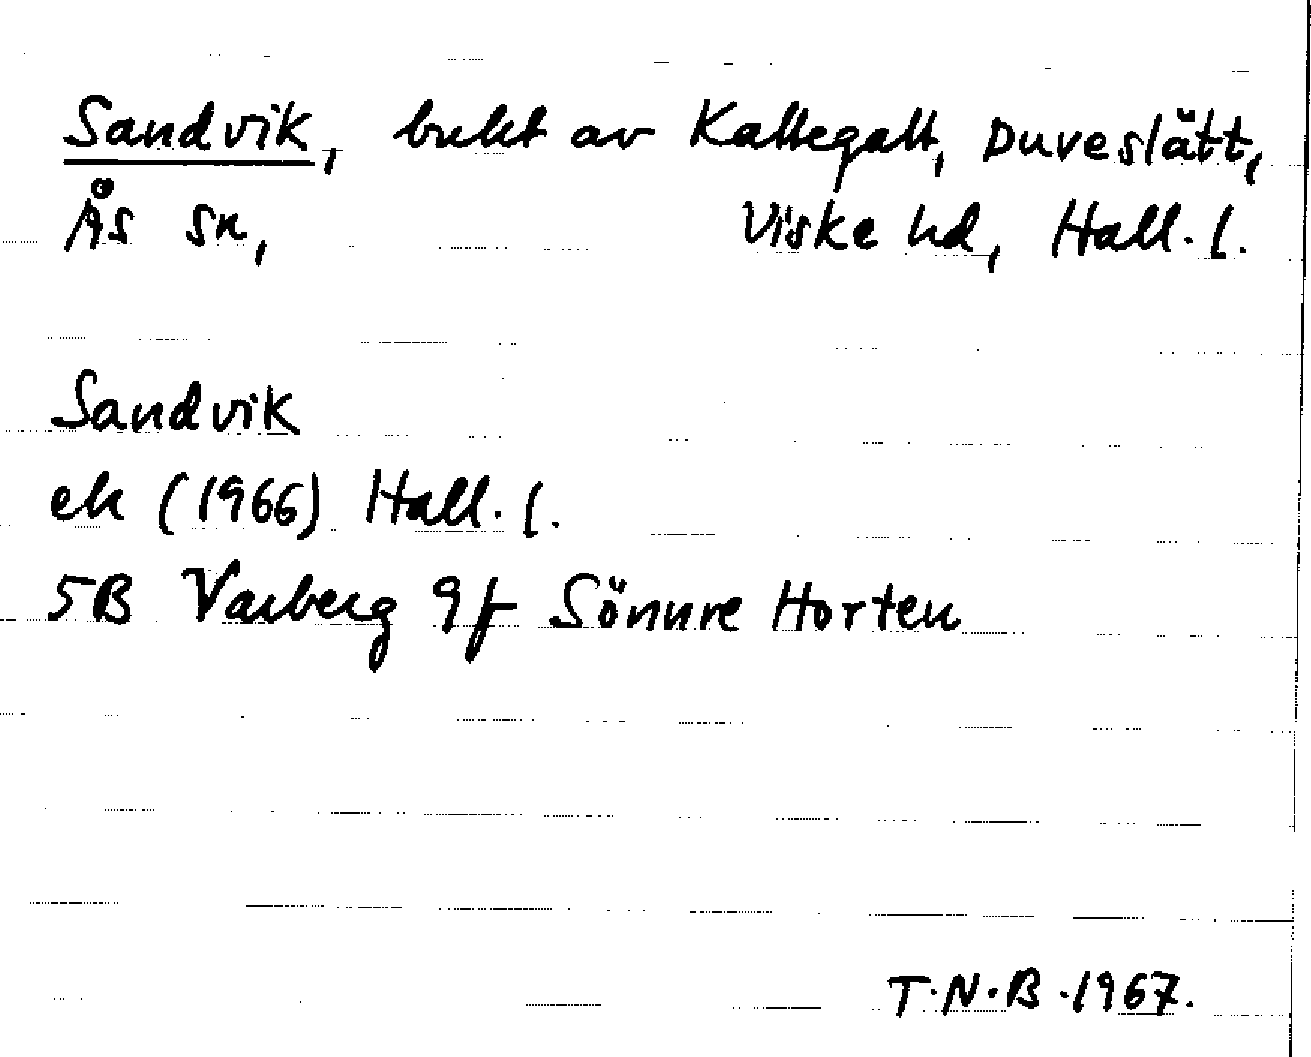 Sandvik, bukt av Kattegatt, Duveslätt,
Ås sn, Viske hd, Hall. l.
Sandvik
ek (1966) Hall. l.
5B Varberg 9f Sönnre Horten
T.N.B. 1967.